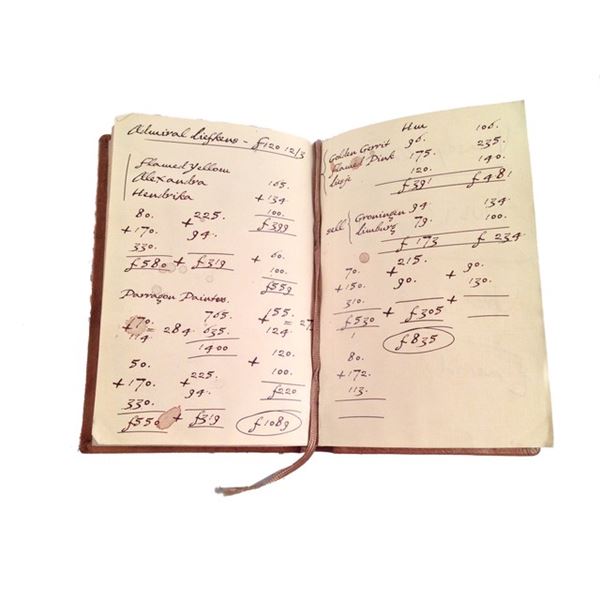 Admiral Liefkens - f120 12/3
Flamed Yellow
Alexandra 165.
Hendrika + 134.
80. + 225. 100.
+ 170. 94. f399
330.
f580 + f319 + 60.
100.
f559
Parragon Painters
+ 70. 765. + 155.
114 = 284. 635. 124. = 27
1400
+ 120.
50. + 225. 100.
+ 170. 94. f220
330.
f550 + f319 f1089
Hm
Golden Gerrit 96. 106.
Flamed Pink 175. 235.
Lusje 120. 140.
f391 f481
sell Groningen 94. 134.
Limburg 79. 100.
f173 f234
+ 215.
70. 90. + 90.
+ 150. 130.
310.
f530 + f305 +
f835
80.
+ 172.
113.